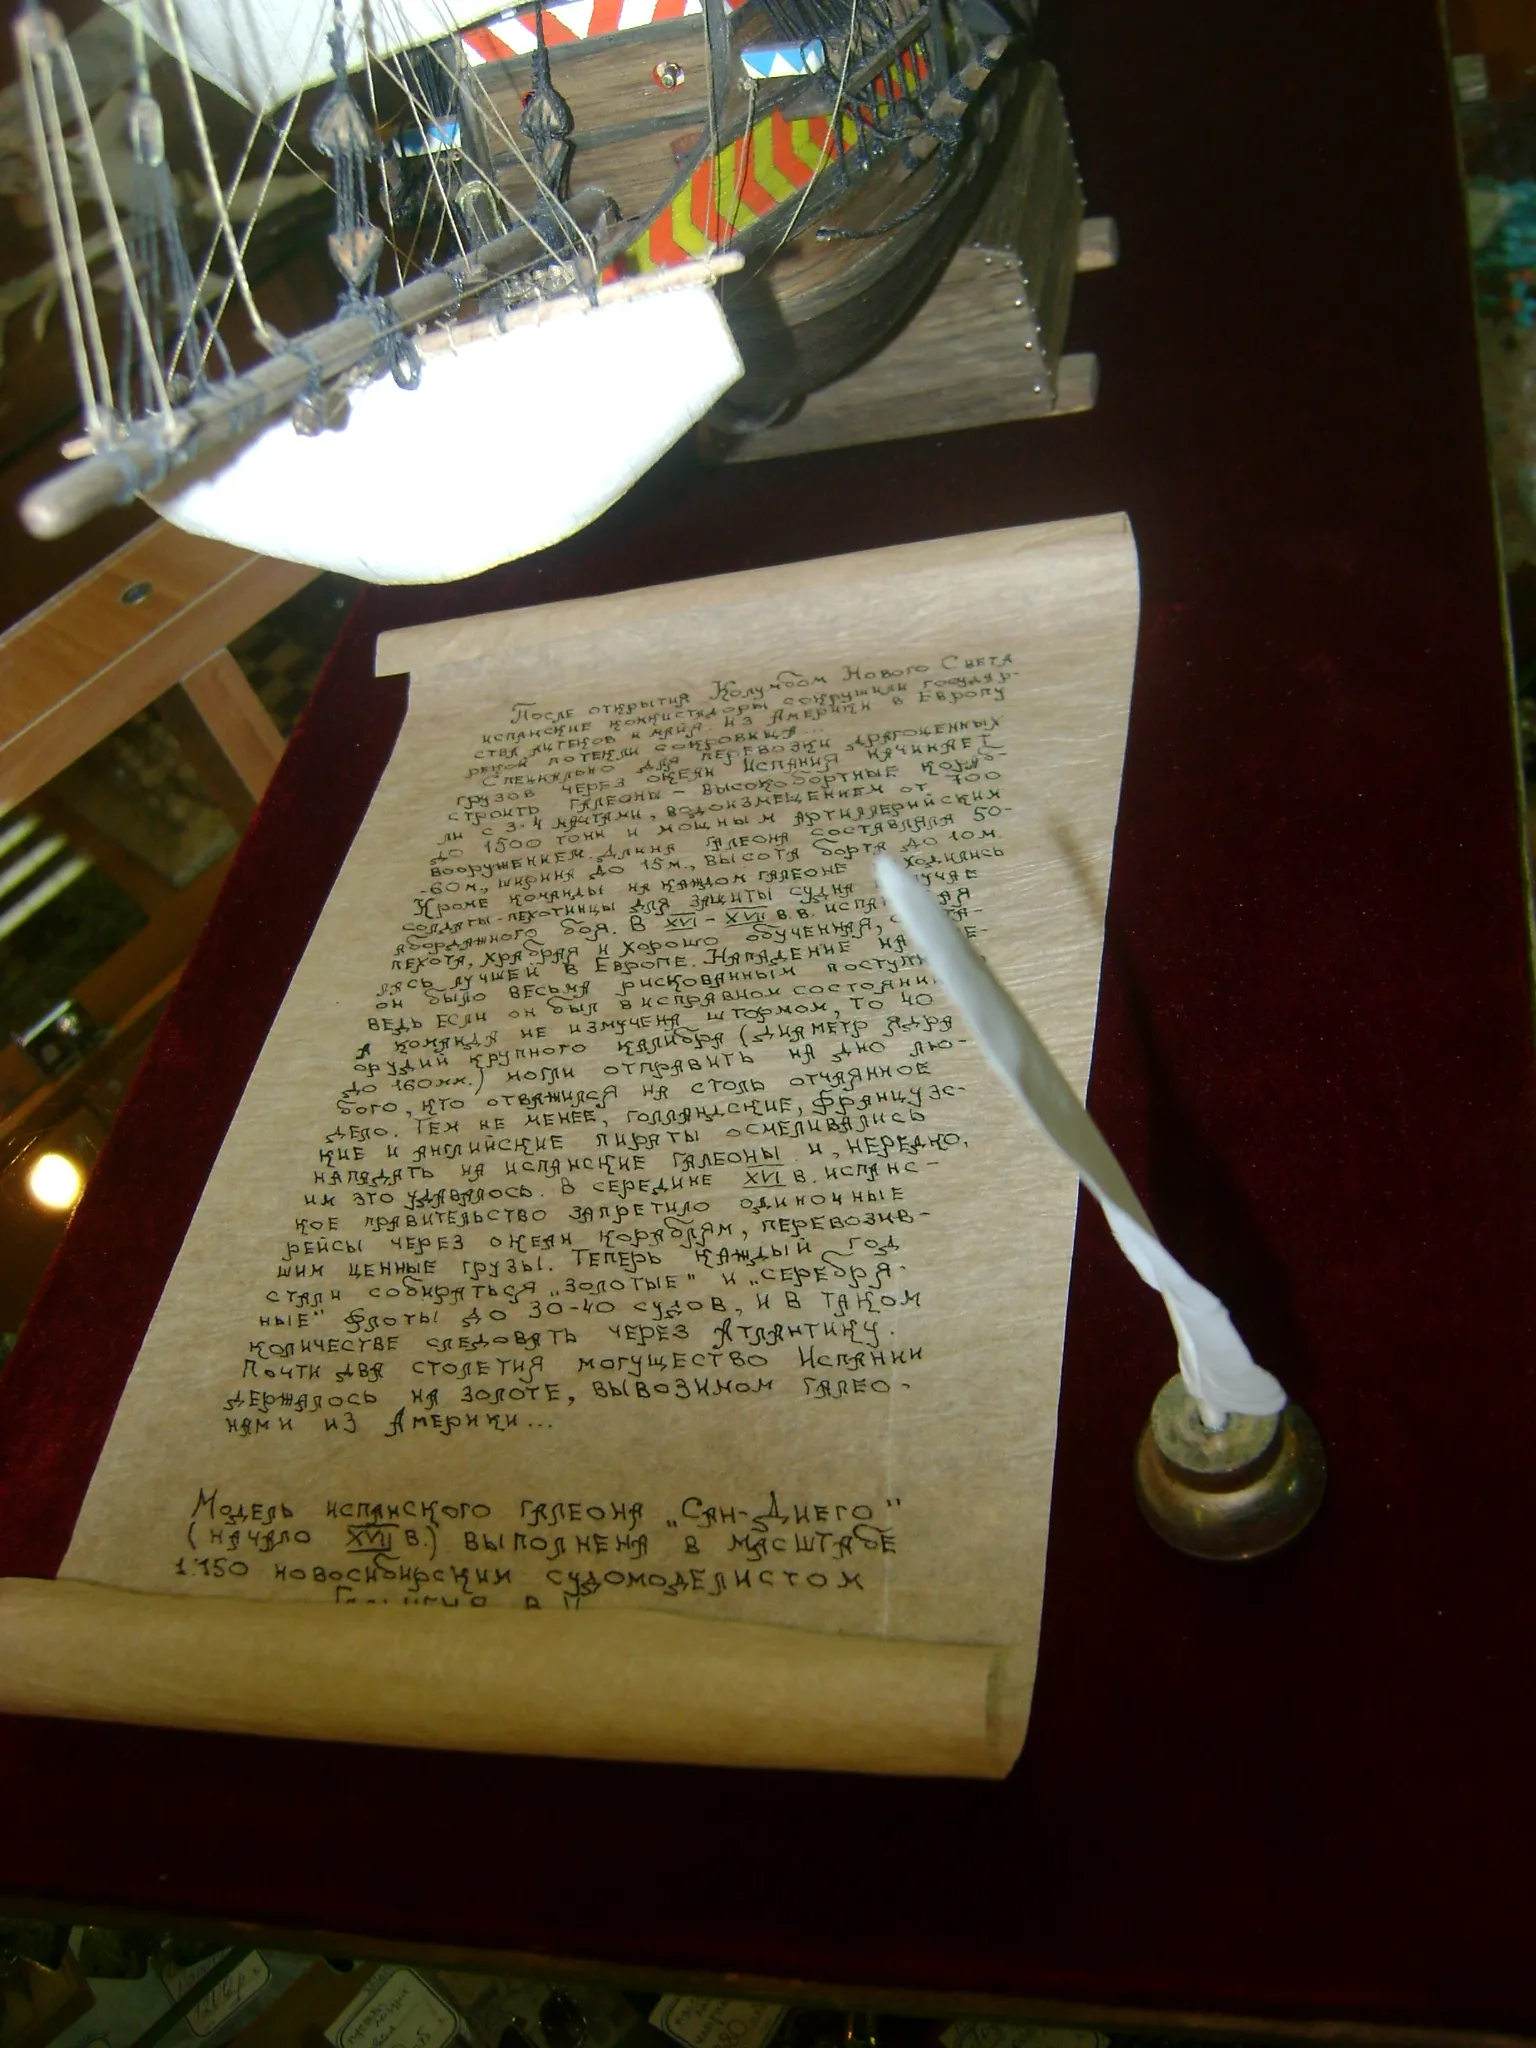 После открытия Колумбом Нового Света
испанские конкистадоры сокрушили государ-
ства ацтеков и майя. Из Америки в Европу
рекой потекли сокровища...
Специально для перевозки драгоценных
грузов через океан Испания начинает
строить галеоны – высокобортные кораб-
ли с 3-4 мачтами, водоизмещением от 700
до 1500 тонн и мощным артиллерийским
вооружением. Длина галеона составляла 50-
-60м., ширина до 15м., высота борта до 10м.
Кроме команды на каждом галеоне
солдаты-пехотинцы для защиты судна
абордажного боя. В XVI – XVII в.в.
пехота, храбрая и хорошо обученная,
лась лучшей в Европе. Нападение
он было весьма рискованным
ведь если он был в исправном
а команда не измучена штормом, то 40
орудий крупного калибра (диаметр ядра
до 160мм.) могли отправить на дно лю-
бого, кто отважился на столь отчаянное
дело. Тем не менее, голландские, французс-
кие и английские пираты осмеливались
нападать на испанские галеоны и, нередко,
им это удавалось. В середине XVI в. испанс-
кое правительство запретило одиночные
рейсы через океан кораблям, перевозив-
шим ценные грузы. Теперь каждый год
стали собираться „золотые" и „серебря-
ные" флоты до 30-40 судов, и в таком
количестве следовать через Атлантику.
Почти два столетия могущество Испании
держалось на золоте, вывозимом галео-
нами из Америки...
Модель испанского галеона „Сан-Диего"
(начало XVII в.) выполнена в масштабе
1:150 новосибирским судомоделистом